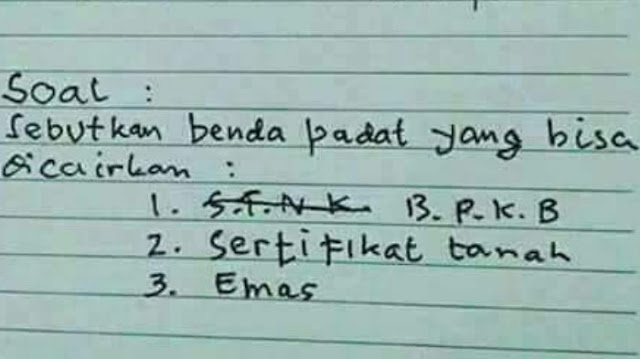 Soal :
Sebutkan benda padat yang bisa
dicairkan :
1. S.T.N.K. B.P.K.B
2. Sertifikat tanah
3. Emas